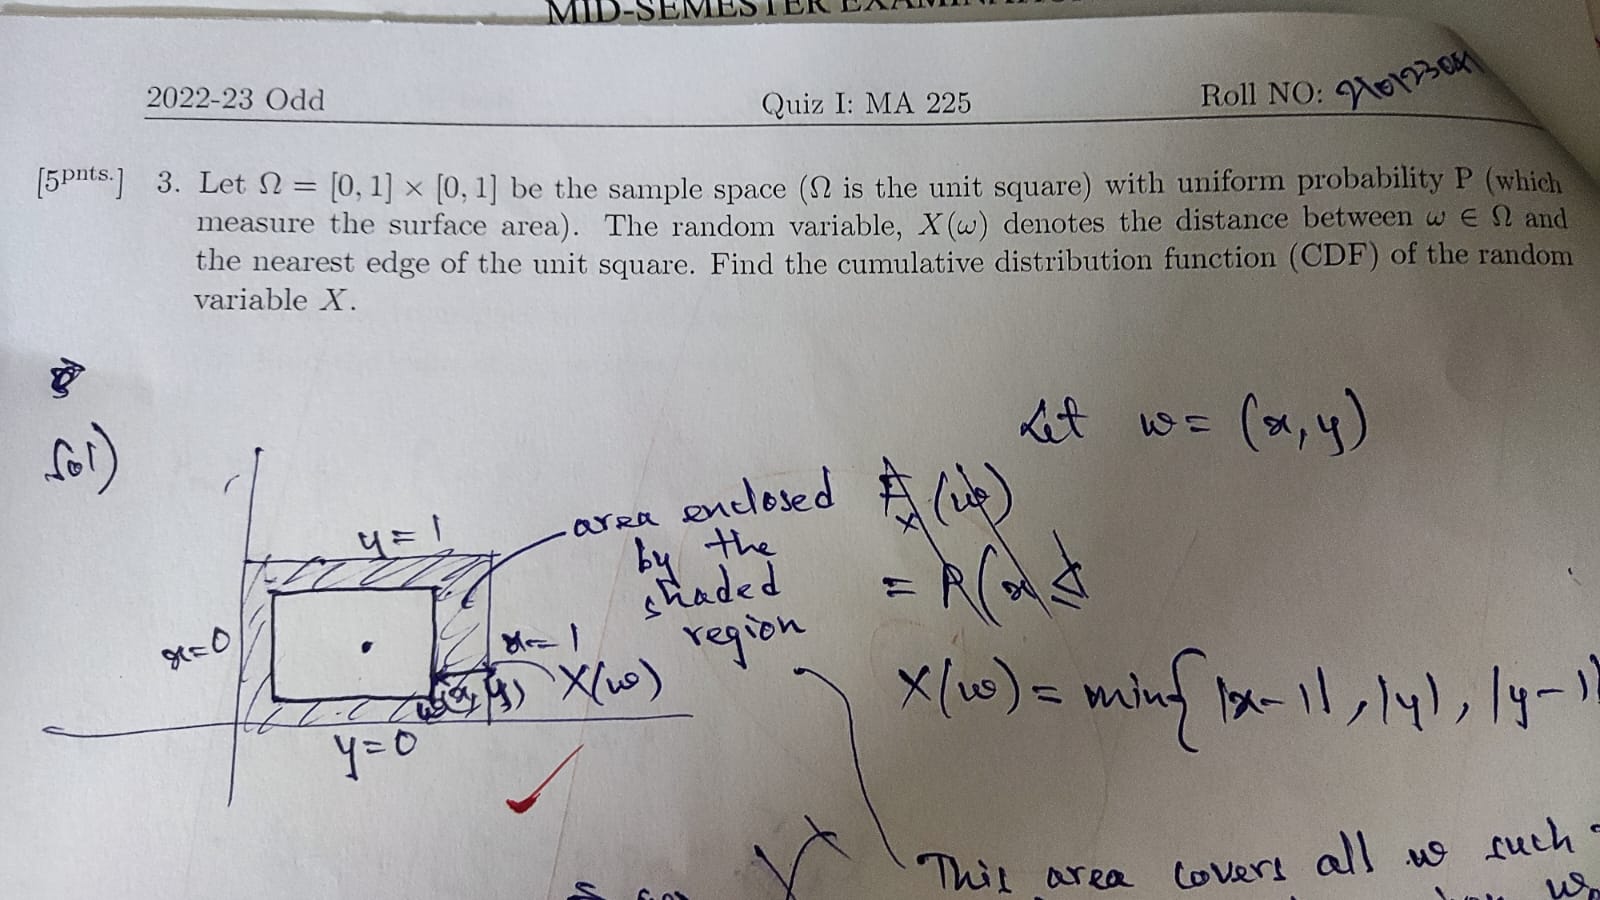 MID-SEMESTER
2022-23 Odd
Quiz I: MA 225
Roll NO:
[5pnts.] 3. Let Ω = [0, 1] × [0, 1] be the sample space (Ω is the unit square) with uniform probability P (which
measure the surface area). The random variable, X(ω) denotes the distance between ω ∈ Ω and
the nearest edge of the unit square. Find the cumulative distribution function (CDF) of the random
variable X.
Let w = (x, y)
Sol)
area enclosed
by the
shaded
region
y = 1
x=0
x = 1
X(w)
w(x, y)
y = 0
X(w) = min{ |x-1|, |y|, |y-1|
This area covers all w such